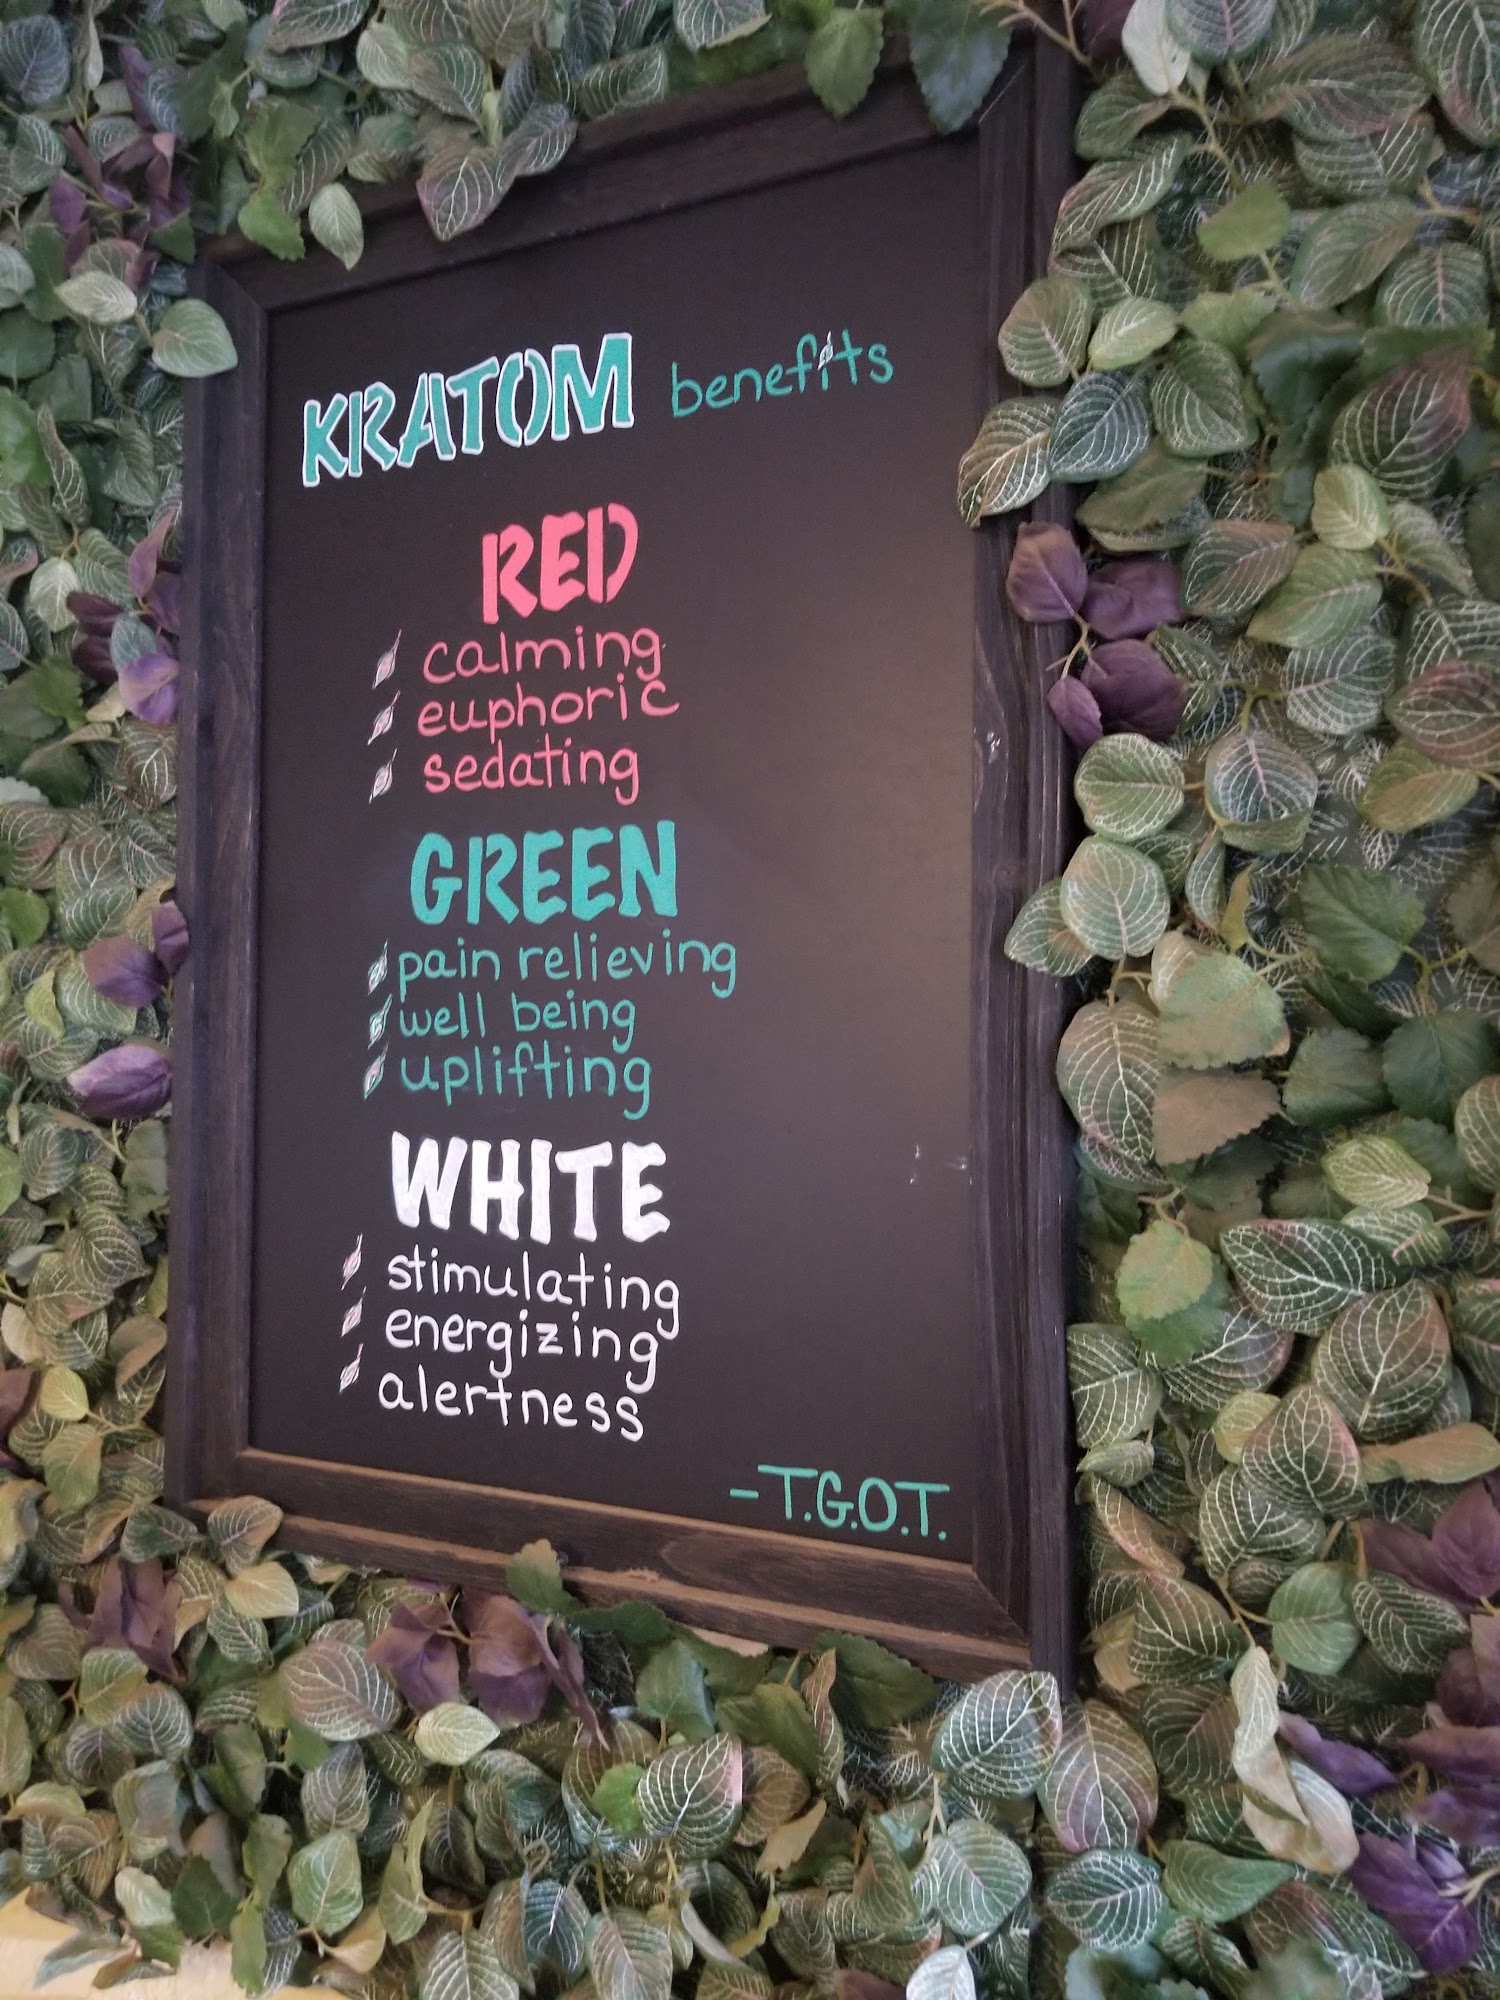 KRATOM benefits
RED
calming
euphoric
sedating
GREEN
pain relieving
well being
uplifting
WHITE
stimulating
energizing
alertness
-T.G.O.T.